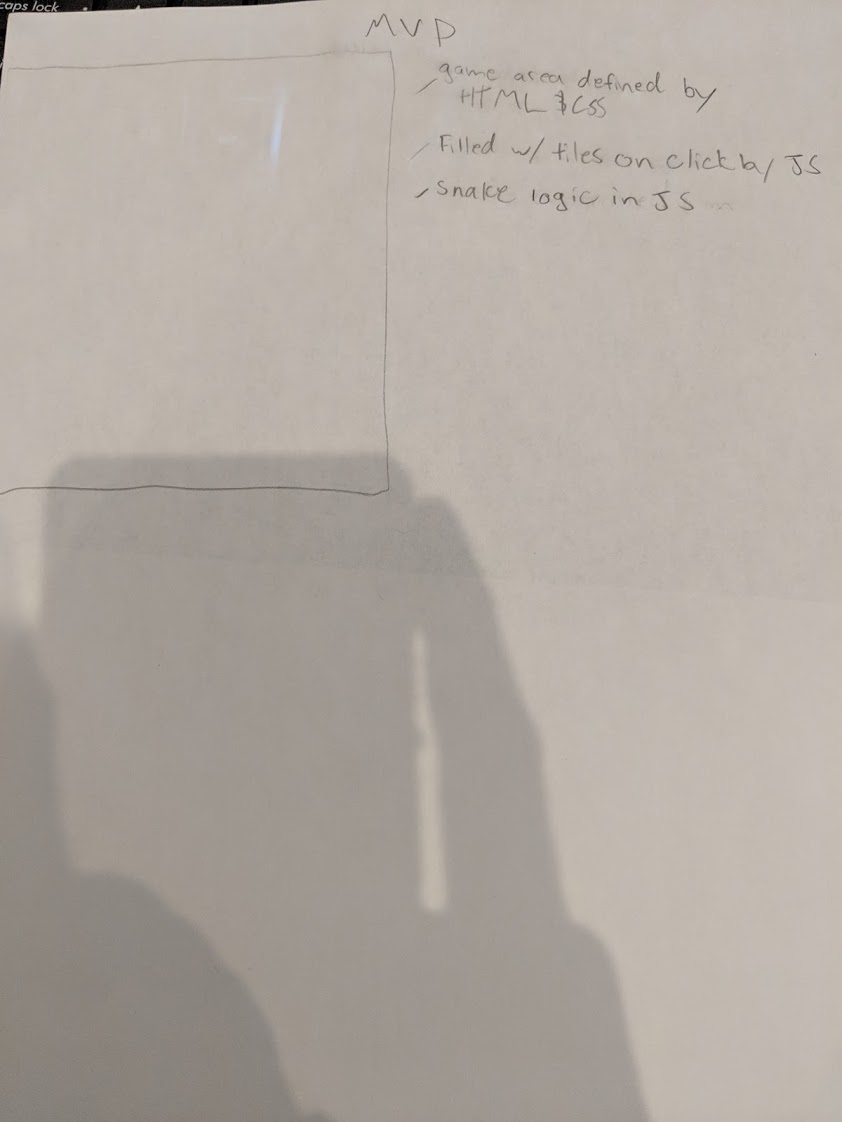 caps lock
MVP
game area defined by
HTML & CSS
Filled w/ tiles on click by JS
Snake logic in JS